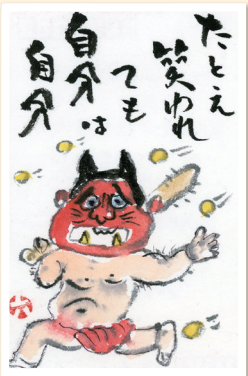 たとえ
笑われ
ても
自分は
自分